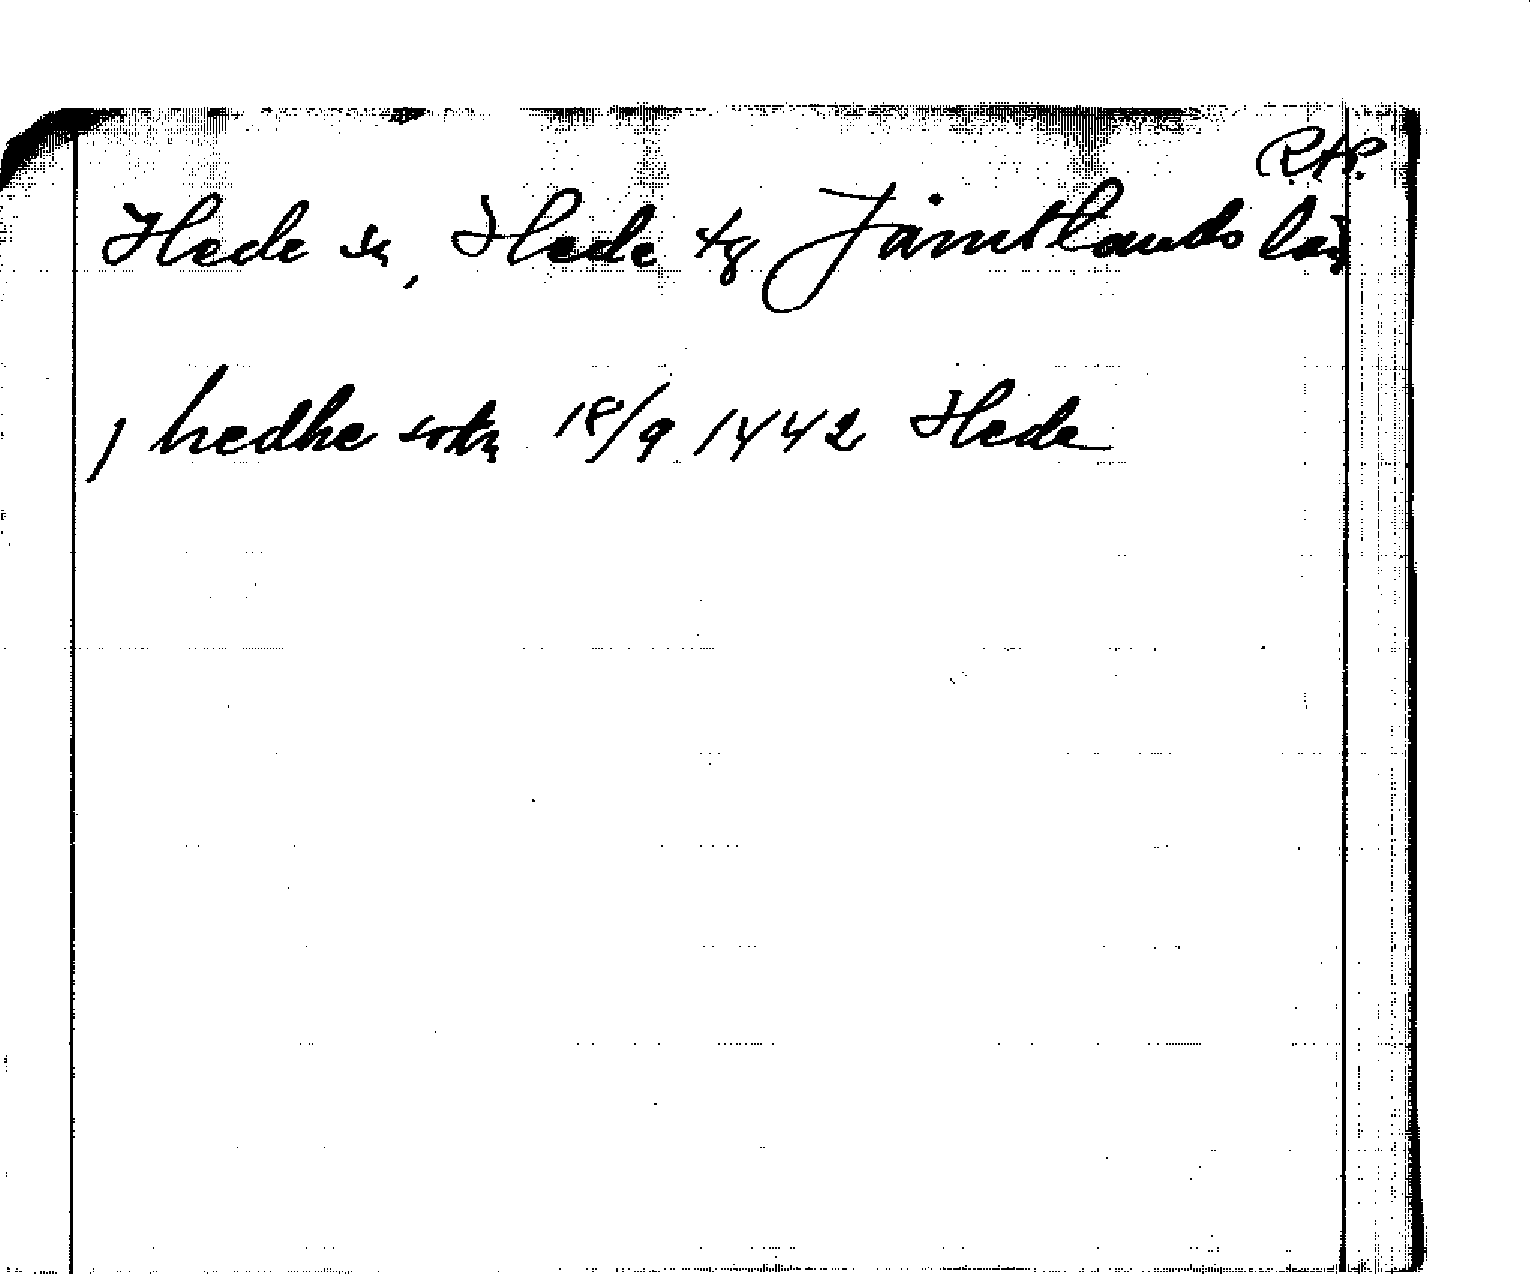 R.A.P.
Hede sn, Hede tg Jämtlands län
j hedhe sokn 18/9 1442 Hede